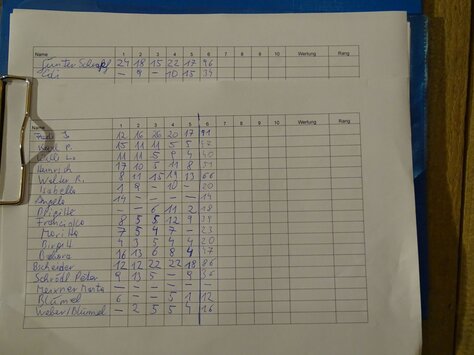 Name 1 2 3 4 5 6 7 8 9 10 Wertung Rang
Günter 24 18 15 22 17 96
Edi - 9 - 10 15 34
Name 1 2 3 4 5 6 7 8 9 10 Wertung Rang
12 16 26 20 17 91
Karl P. 15 11 11 5 5
Willi 11 11 5 9 4 40
Heinrich 17 10 5 11 8 51
Walter R. 8 11 15 19 13 66
Isabella 1 9 - 10 - 20
Angela 14 - - - - 14
Brigitte - - 6 11 2 18
Franziska 8 5 5 12 9
Moritz 7 5 4 7 - 23
Birgit 4 3 5 4 4 20
Barbara 16 13 6 8 4 47
12 12 22 22 18 86
Schrödl Peter 9 13 5 - 9 36
- - - - -
Blümel 6 - - 5 1 12
Weber/Blümel - 2 5 5 4 16